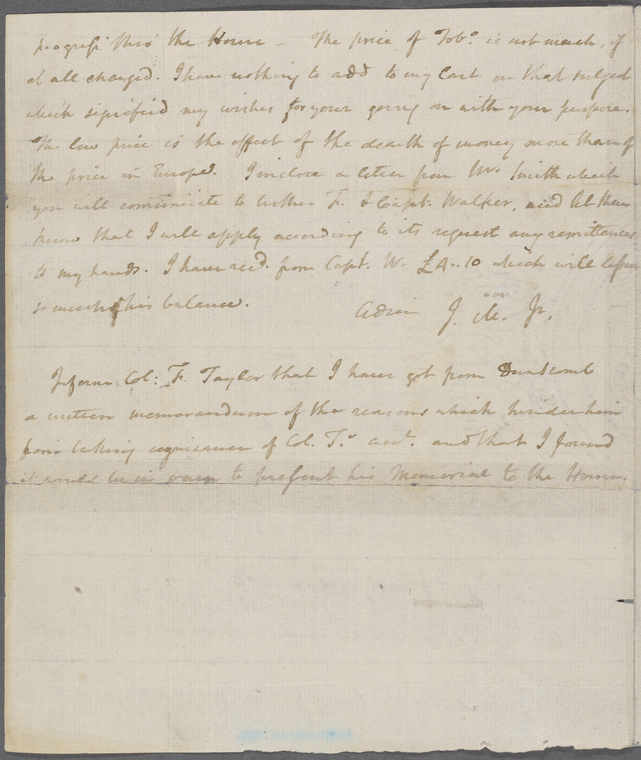 progress thro' the House — The price of Tobo. is not much, if
at all changed. I have nothing to add to my last on that subject
which signified my wishes for your going on with your purpose.
The low price is the effect of the dearth of money more than of
the price in Europe. I inclose a letter from Mr. Smith which
you will communicate to brother F. & Capt. Walker, and let them
know that I will apply according to its request any remittances
to my hands. I have recd. from Capt. W. £4..10 which will lessen
so much of his balance.
Adieu J. M. Jr.
Inform Col: F. Taylor that I have got from Dunscomb
a written memorandum of the reasons which hinder him
from taking cognizance of Col. T.s acct. and that I found
it would be in vain to present his Memorial to the House.